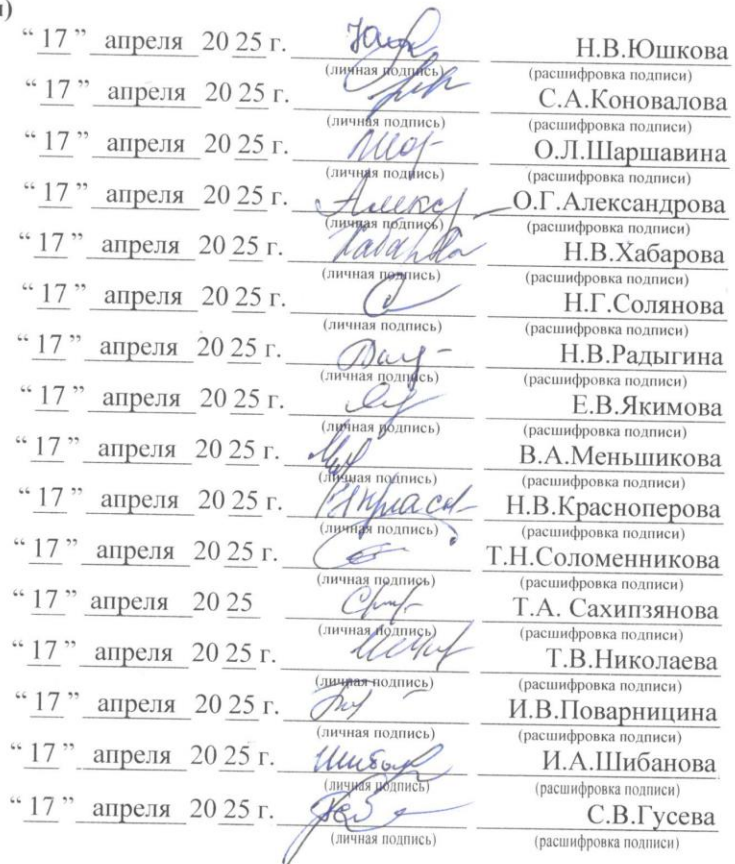 )
“ 17 ” апреля 20 25 г. Н.В.Юшкова
(личная подпись) (расшифровка подписи)
“ 17 ” апреля 20 25 г. С.А.Коновалова
(личная подпись) (расшифровка подписи)
“ 17 ” апреля 20 25 г. О.Л.Шаршавина
(личная подпись) (расшифровка подписи)
“ 17 ” апреля 20 25 г. Алекс О.Г.Александрова
(личная подпись) (расшифровка подписи)
“ 17 ” апреля 20 25 г. Хабарова Н.В.Хабарова
(личная подпись) (расшифровка подписи)
“ 17 ” апреля 20 25 г. Н.Г.Солянова
(личная подпись) (расшифровка подписи)
“ 17 ” апреля 20 25 г. Н.В.Радыгина
(личная подпись) (расшифровка подписи)
“ 17 ” апреля 20 25 г. Е.В.Якимова
(личная подпись) (расшифровка подписи)
“ 17 ” апреля 20 25 г. В.А.Меньшикова
(личная подпись) (расшифровка подписи)
“ 17 ” апреля 20 25 г. Н.В.Красноперова
(личная подпись) (расшифровка подписи)
“ 17 ” апреля 20 25 г. Т.Н.Соломенникова
(личная подпись) (расшифровка подписи)
“ 17 ” апреля 20 25 Т.А. Сахипзянова
(личная подпись) (расшифровка подписи)
“ 17 ” апреля 20 25 г. Т.В.Николаева
(личная подпись) (расшифровка подписи)
“ 17 ” апреля 20 25 г. И.В.Поварницина
(личная подпись) (расшифровка подписи)
“ 17 ” апреля 20 25 г. И.А.Шибанова
(личная подпись) (расшифровка подписи)
“ 17 ” апреля 20 25 г. С.В.Гусева
(личная подпись) (расшифровка подписи)